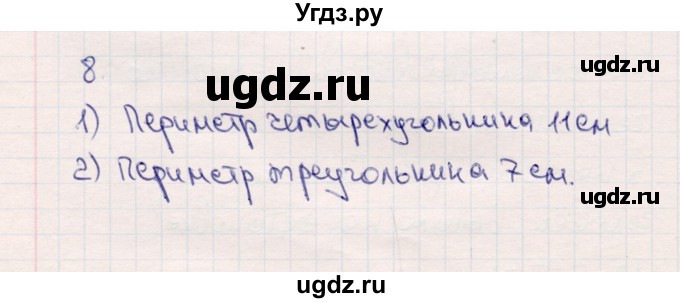 Угдз.ру
8
ugdz.ru
ugdz.ru
1) Периметр четырехугольника 11 см
2) Периметр треугольника 7 см.
ugdz.ru
ugdz.ru